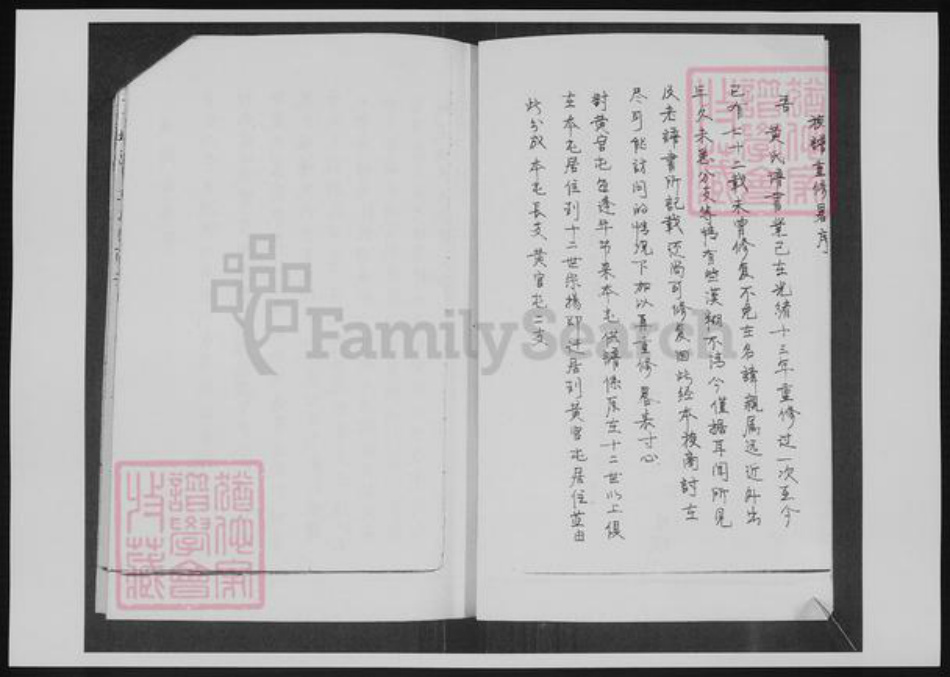 族譜重修畧序
吾黄氏譜書業已在光緒十三年重修过一次至今
已有七十二載未曾修复不免在名諱親属远近外出
年久未悉分支等情有些漠糊不清今僅據耳闻所見
及老譜書所記載还尚可修复因此经本族商討在
尽可能访问的情况下加以再重修畧表寸心
對黄官屯每逢年节来本屯供譜係原在十二世以上俱
在本屯居住到十二世宗揚即迁居到黄官屯居住並由
此分成本屯長支黄官屯二支
FamilySearch
猶他家
譜學會
收藏
猶他家
譜學會
收藏